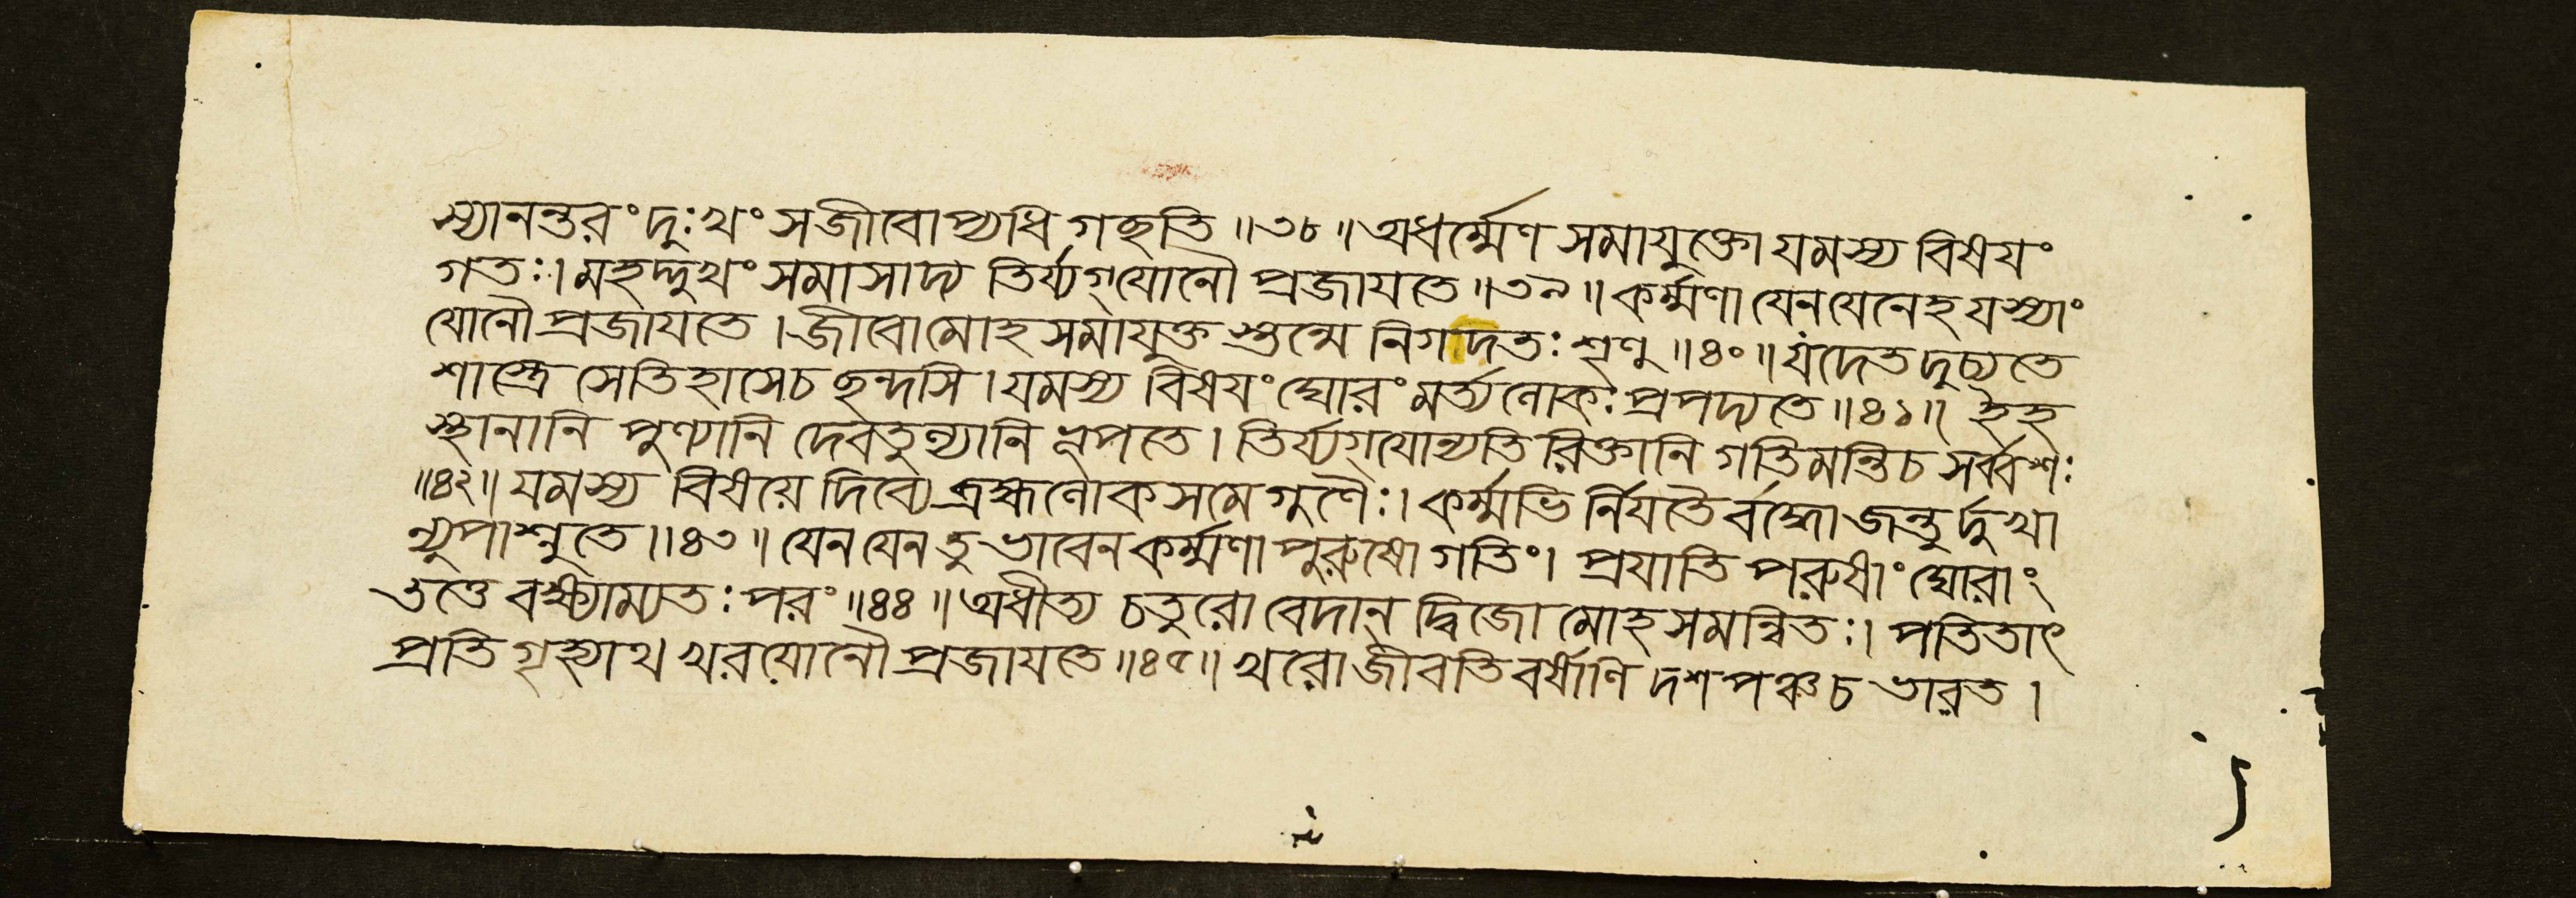 স্যানন্তরং দুঃখং সজীবোপ্যধি গচ্ছতি ॥৩৮॥ অধর্ম্মেণ সমাযুক্তো যমস্য বিষযং
গতঃ। মহদ্দুখং সমাসাদ্য তির্য্যগ্যোনৌ প্রজাযতে ॥৩৯॥ কর্ম্মণা যেনযেনেহ যস্যাং
যোনৌ প্রজাযতে । জীবোমোহ সমাযুক্ত স্তন্মে নিগদতঃ শৃণু ॥৪০॥ যদেত দুচ্যতে
শাস্ত্রে সেতিহাসেচ ছন্দসি । যমস্য বিষযং ঘোরং মর্ত্যলোকঃ প্রপদ্যতে ॥৪১॥ ইহ
স্থানানি পুণ্যানি দেবতুল্যানি নৃপতে । তির্য্যগ্যোন্যতি রিক্তানি গতিমন্তিচ সর্ব্বশঃ
॥৪২॥ যমস্য বিষযে দিব্যে ব্রহ্মলোকসমে গুণৈঃ। কর্ম্মভি র্নিযতৈ র্বদ্ধো জন্তুর্দুখা
ন্যুপাশ্নুতে ॥৪৩॥ যেন যেন তু ভাবেন কর্ম্মণা পুরুষো গতিং। প্রযাতি পরুষাং ঘোরাং
তত্তে বক্ষ্যাম্যতঃ পরং ॥৪৪॥ অধীত্য চতুরো বেদান্ দ্বিজো মোহসমন্বিতঃ। পতিতাৎ
প্রতি গৃহ্যাথ খরযোনৌ প্রজাযতে ॥৪৫॥ খরো জীবতি বর্ষাণি দশ পঞ্চচ ভারত ।